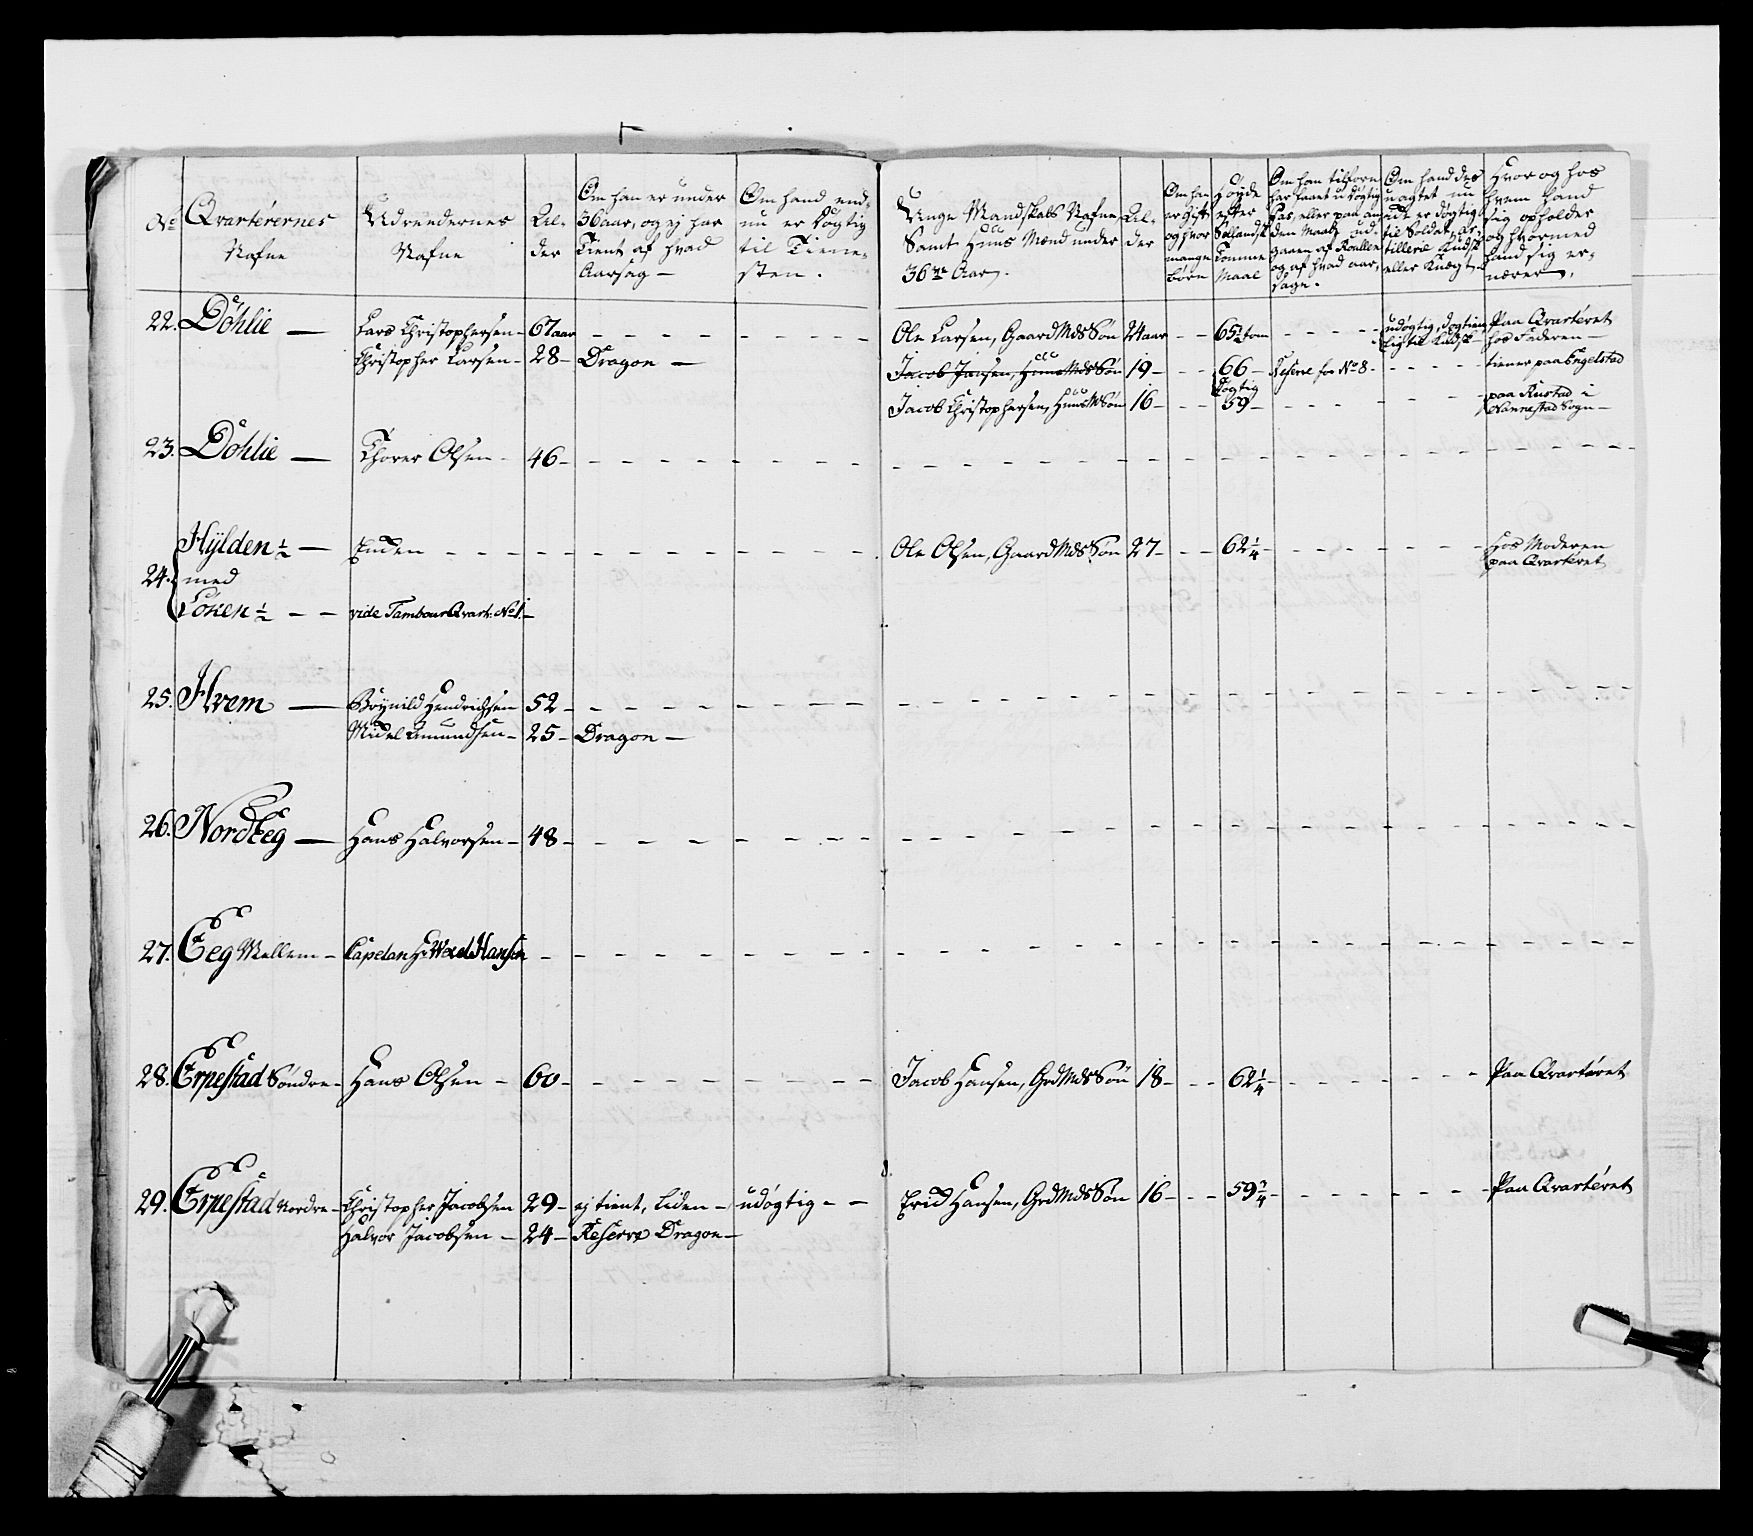 No
Qvarterernes
Nafne
Udreedernes
Nafne
Al-
der
Om han er under
36 aar, og ej har
Tient af hvad
Aarsag —
Om hand end-
nu er Døgtig
til Tiene-
sten.
Unge Mandskabs Nafne
Samt Huus Mænd under
36 Aar.
Al-
der
Om han
er gift
og hvor
mange
børn
Høyde
efter
Sællandsk
Tomme
Maal
Om han tilforn
har været udøgtig
Pas, eller paa an-
den Maade ud-
gaaen af Roullen
og af hvad aar-
sage.
Om hand des
uagtet nu
er døgtig
til Soldat, Ar-
tillerie Kudsk
eller Knægt
Hvor og hos
hvem hand
sig opholder
og hvormed
hand sig er-
nærer.
22. Döhlie — Lars Christophersen — 67 aar — — — — Ole Larsen, Gaard Mds Søn 24 aar — — 65 3/4 tom — — — udøgtig, Paa Qvarteret
til Kudsk hos Faderen —
Christopher Larsen — 28 — Dragon — Jacob Jansen, Huus Mds Søn 19 — — — 66 — Reserve for No 8 — — — — tiener paa Engelstad
Døgtig
Jacob Christophersen, Huus M Søn 16 — — — 59 — — — — — paa Rustad i
Nannestad Sogn —
23. Döhlie — Thorer Olsen — 46 — — — —
Hylden ½ — Enken — — — — Ole Olsen, Gaard Mds Søn 27 — — — 62 ¼ — — — — Hos Moderen
paa Qvarteret
24. med
Löken ½ — — vide Tambour Qvart: No 1. —
25. Hvem — Bøynild Hendrichsen 52 — — — —
Michel Amundsen — 25 — Dragon —
26. Nordbeg — Hans Halvorsen — 48 — — — —
27. Eeg Mellem — Capelan Hr Wexel Hansen — — — —
28. Erpestad Søndre — Hans Olsen — 60 — — — — Jacob Hansen, Grd Mds Søn 18 — — — 62 ¼ — — — — Paa Qvarteret
29. Erpestad Nordre — Christopher Jacobsen 29 — ej tient, liden — udøgtig — — Erich Hansen, Grd Mds Søn 16 — — — 59 3/4 — — — — Paa Qvarteret
Halvor Jacobsen — 24 — Reserve Dragon —